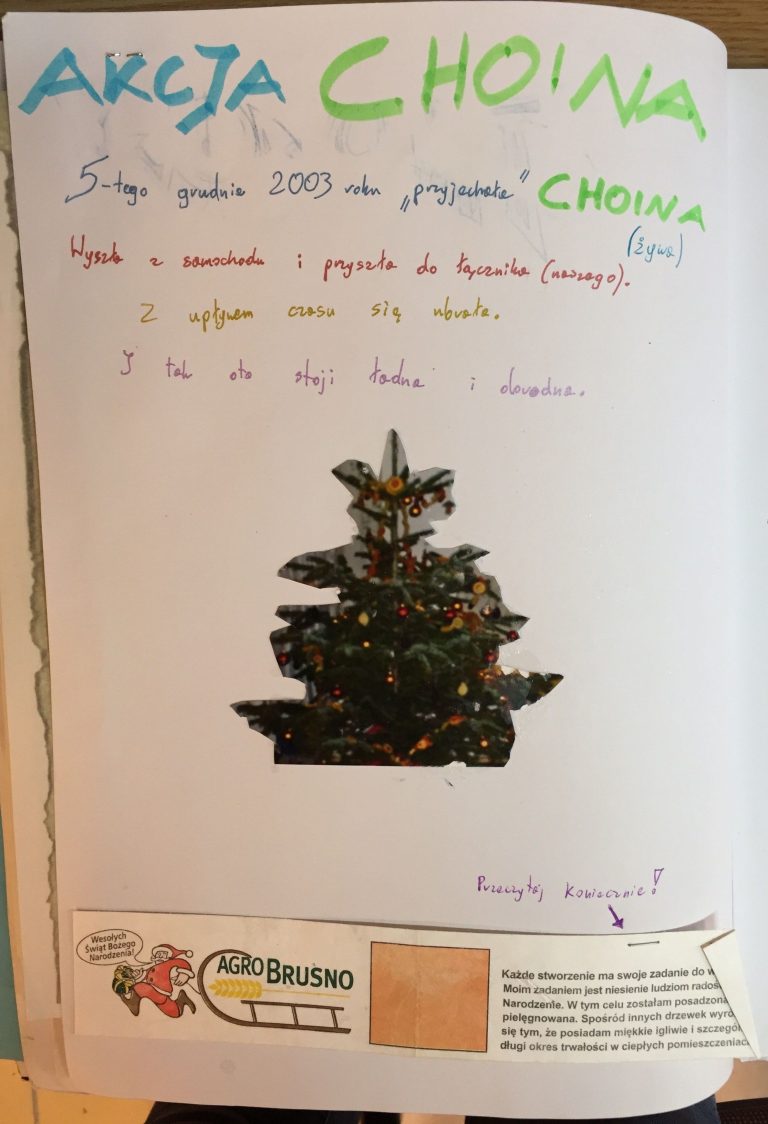 AKCJA CHOINA
5-tego grudnia 2003 roku „przyjechała” CHOINA
(żywa)
Wyszła z samochodu i przyszła do łącznika (naszego).
Z upływem czasu się ubrała.
I tak oto stoji ładna i dorodna.
Przeczytój koniecznie!
Wesołych
Świąt Bożego
Narodzenia!
AGROBRUSNO
Każde stworzenie ma swoje zadanie do w
Moim zadaniem jest niesienie ludziom rados
Narodzenie. W tym celu zostałam posadzona
pielęgnowana. Spośród innych drzewek wyró
się tym, że posiadam miękkie igliwie i szczegó
długi okres trwałości w ciepłych pomieszczeniac